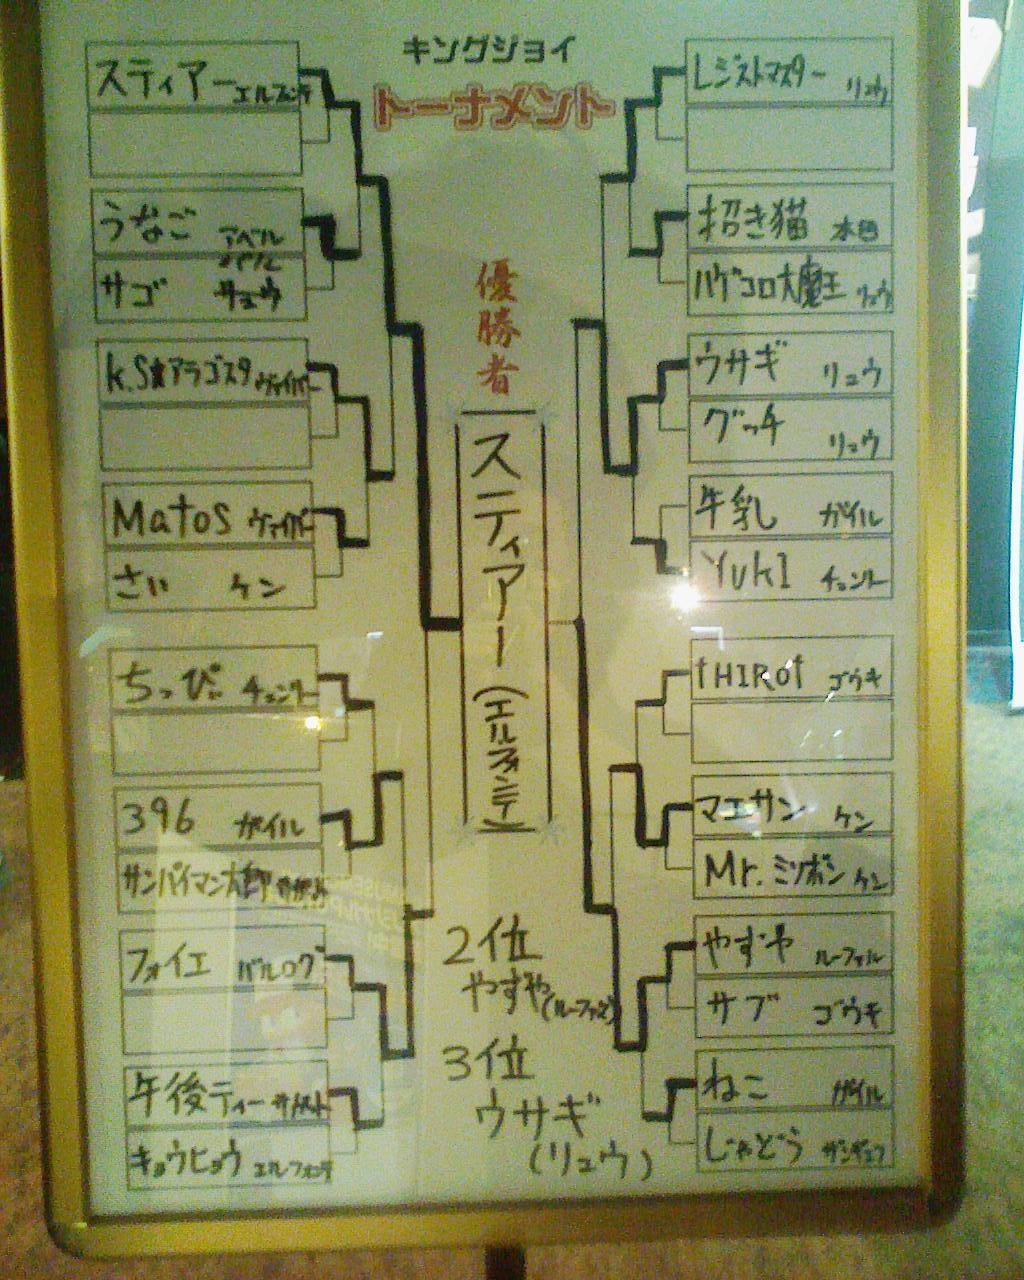 キングジョイ
トーナメント
スティアー エルフォンテ
うなご アベル
サゴ サキュウ
K.S★アラゴスタ ヴァイパー
Matos ヴァイパー
さい ケン
ちっぴぃ チュンリー
396 ガイル
サンバイマン太郎
フォイエ バルログ
午後ティー サガット
キョウヒョウ エルフォンテ
優勝者
スティアー(エルフォンテ)
2位
やすや(ルーファス)
3位
ウサギ
(リュウ)
レジストマスター リュウ
招き猫 本田
ハゲコロ大魔王 リュウ
ウサギ リュウ
グッチ リュウ
牛乳 ガイル
YUKI チュンリー
†HIRO† ゴウキ
マエサン ケン
Mr.ミツボシ ケン
やすや ルーファス
サブ ゴウキ
ねこ ガイル
じゃどう ザンギエフ